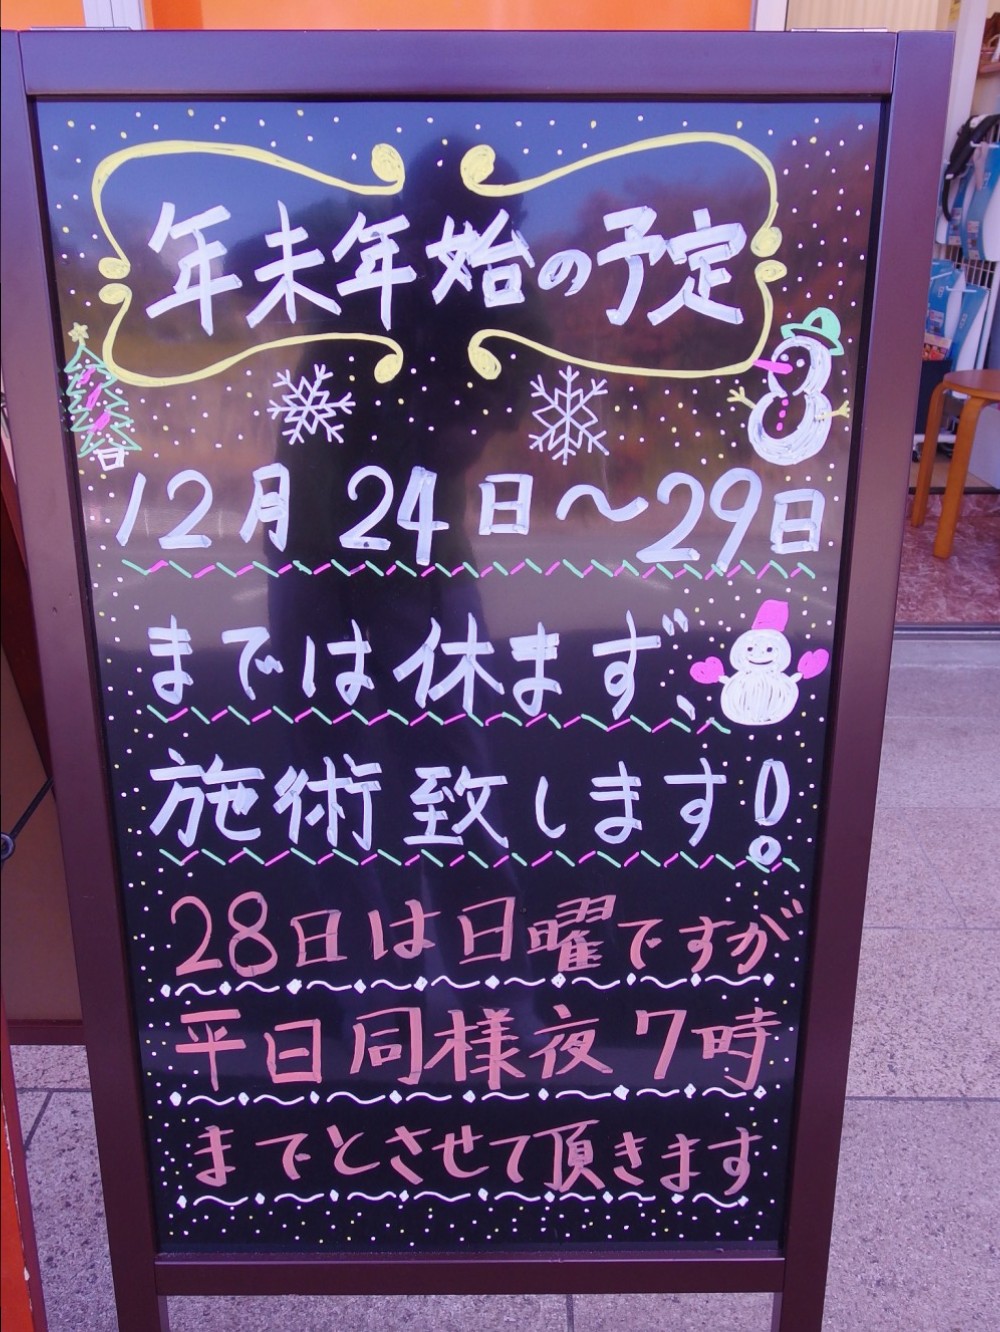 年末年始の予定
12月 24日～29日
までは休まず、
施術致します!
28日は日曜ですが
平日同様夜7時
までとさせて頂きます